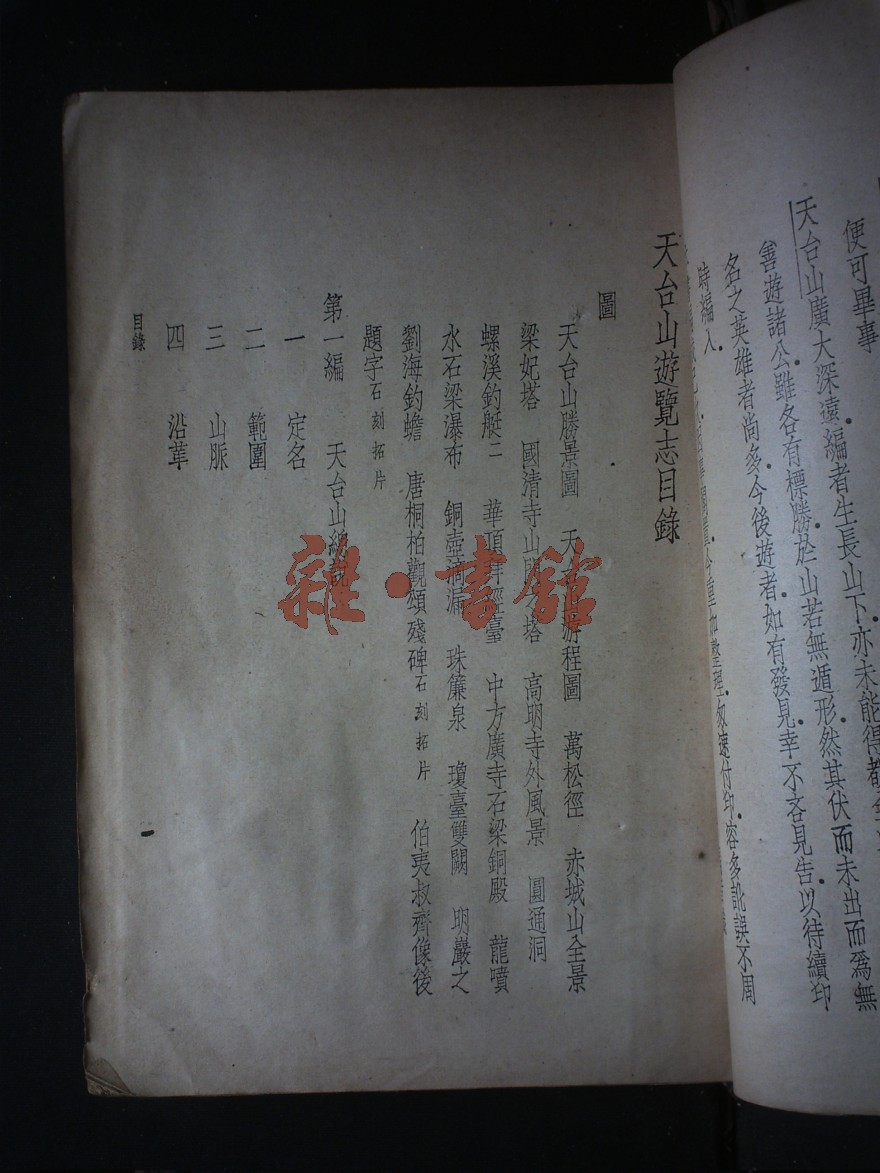 便可畢事
天台山廣大深遠編者生長山下亦未能得
善遊諸公雖各有標勝於山若無遁形然其伏而未出而爲無
名之英雄者尚多今後遊者如有發見幸不吝見告以待續印
時編入
重加整理匆速付印容多訛誤不周
天台山遊覽志目錄
圖
天台山勝景圖 天台山游程圖 萬松徑 赤城山全景
梁妃塔 國清寺山 塔 高明寺外風景 圓通洞
螺溪釣艇二 華頂拜經臺 中方廣寺石梁銅殿 龍噴
水石梁瀑布 銅壺滴漏 珠簾泉 瓊臺雙闕 明巖之
劉海釣蟾 唐桐柏觀頌殘碑石刻拓片 伯夷叔齊像後
題字石刻拓片
第一編 天台山總說
一 定名
二 範圍
三 山脈
四 沿革
目錄
一
雜·書館